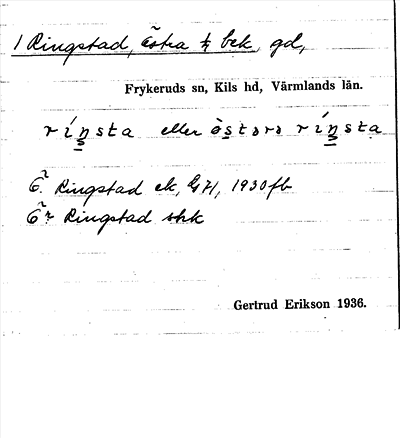 1 Ringstad, Östra bek, gd,
Frykeruds sn, Kils hd, Värmlands län.
ríŋsta eller östərə ríŋsta
Ö. Ringstad ek, G 71, 1930 fb
Ö Ringstad shk
Gertrud Erikson 1936.